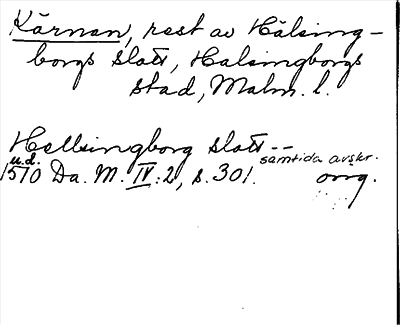 Kärnan, rest av Hälsing-
borgs slott, Halsingborgs
stad, Malm. l.
Hellsingborg slott --
u.d. samtida avskr.
1510 Da. M. IV:2, s. 301. orig.